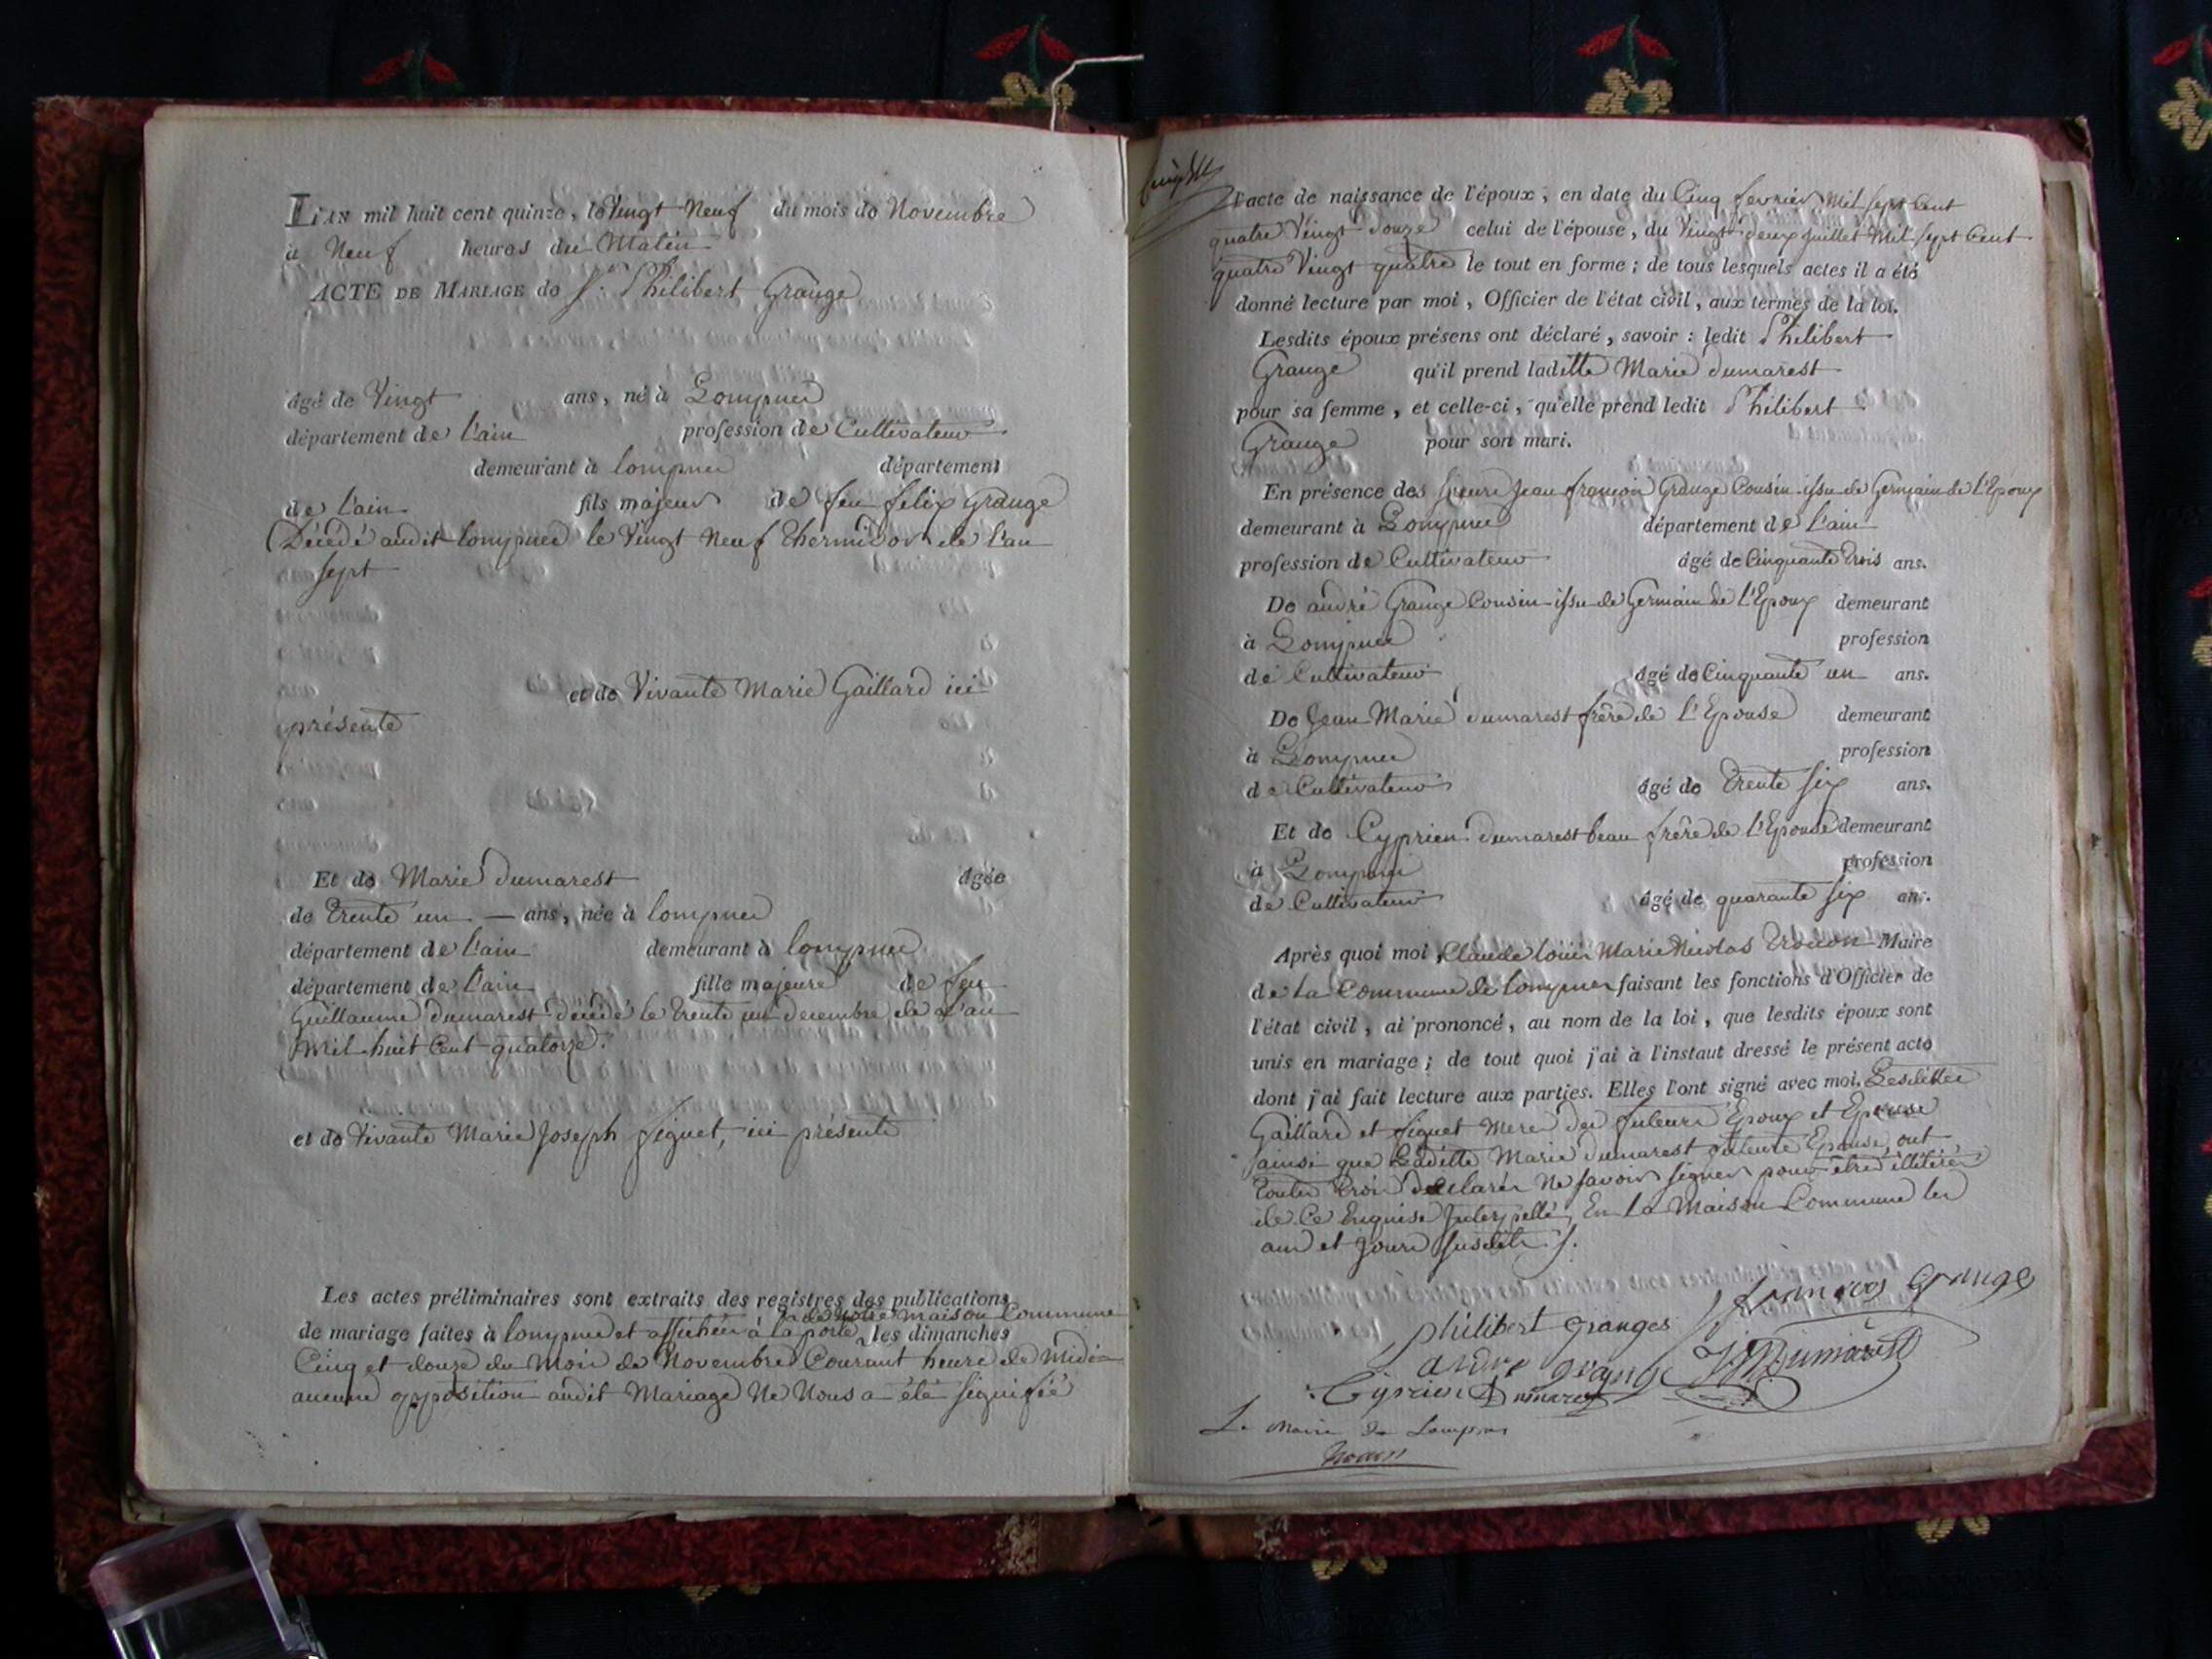 L'AN mil huit cent quinze, le Vingt Neuf du mois de Novembre
à Neuf heures du Matin
ACTE DE MARIAGE de Sr. Philibert Grange
âgé de Vingt ans, né à Lompnes
département de l'ain profession de Cultivateur
demeurant à lompnes département
de l'ain fils majeur de feu felix Grange
Décédé audit lompnes le Vingt Neuf thermidor de l'an
sept
et de Vivante Marie Gaillard ici
présente
Et de Marie dumarest âgée
de trente un — ans, née à lompnes
département de l'ain demeurant à lompnes
département de l'ain fille majeure de feu
Guillaume dumarest décédé le trente un decembre de l'an
Mil huit Cent quatorze.
et de Vivante Marie Joseph figuet, ici présente
Les actes préliminaires sont extraits des registres des publications
de mariage faites à lompnes et affichées à la porte de Notre maison Commune les dimanches
Cinq et douze du Mois de Novembre Courant heure de Midi
aucune opposition audit Mariage Ne Nous a été signifiée
l'acte de naissance de l'époux, en date du Cinq fevrier Mil sept Cent
quatre Vingt douze celui de l'épouse, du Vingt deux Juillet Mil sept Cent
quatre Vingt quatre le tout en forme ; de tous lesquels actes il a été
donné lecture par moi, Officier de l'état civil, aux termes de la loi.
Lesdits époux présens ont déclaré, savoir : ledit Philibert
Grange qu'il prend laditte Marie dumarest
pour sa femme, et celle-ci, qu'elle prend ledit Philibert
Grange pour son mari.
En présence des sieurs Jean françois Grange Cousin issu de Germain de l'Epoux
demeurant à Lompnes département de l'ain
profession de Cultivateur âgé de Cinquante trois ans.
De andré Grange Cousin issu de Germain de l'Epoux demeurant
à Lompnes profession
de Cultivateur âgé de Cinquante un ans.
De Jean Marie dumarest frère de l'Epouse demeurant
à Lompnes profession
de Cultivateur âgé de trente six ans.
Et de Cyprien dumarest beau frère de l'Epouse demeurant
à Lompnes profession
de Cultivateur âgé de quarante six ans.
Après quoi moi Claude loüis Marie Nicolas trocon Maire
de La Commune de lompnes faisant les fonctions d'Officier de
l'état civil, ai prononcé, au nom de la loi, que lesdits époux sont
unis en mariage ; de tout quoi j'ai à l'instaut dressé le présent acte
dont j'ai fait lecture aux parties. Elles l'ont signé avec moi, Lesdittes
Gaillard et figuet Meres des futeurs Epoux et Epouse
ainsi que Laditte Marie dumarest future Epouse, ont
toutes trois declarés Ne savoir signer pour être illitérés
de Ce Enquise Interpellé, En La Maison Commune les
ans et Jours susdits
françois Grange
philibert granges
andre grange JMDumarest
Ciprien Dumarest
Le Maire de Lompnes
Trocon